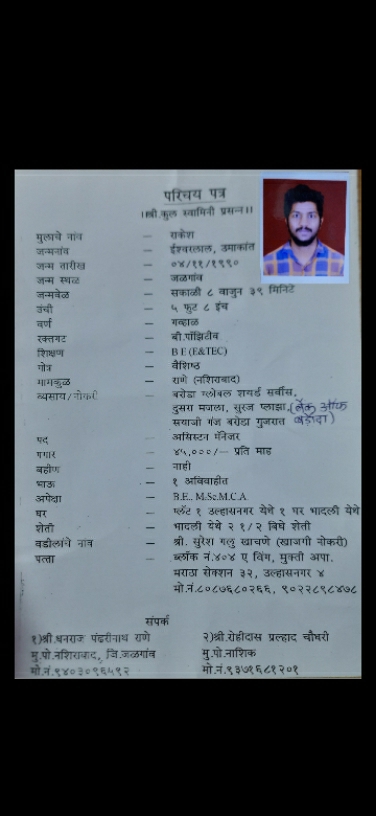 परिचय पत्र
।।श्री.कुल स्वामिनी प्रसन्न।।
मुलाचे नांव – राकेश
जन्मनांव – ईश्वरलाल, उमाकांत
जन्म तारीख – ०४/११/१९९०
जन्म स्थळ – जळगांव
जन्मवेळ – सकाळी ८ वाजुन ३९ मिनिटे
उंची – ५ फुट ८ इंच
वर्ण – गव्हाळ
रक्तगट – बी.पॉझिटीव
शिक्षण – B E (E&TEC)
गोत्र – वैशिष्ठ
मामकुळ – राणे (नशिराबाद)
व्यवसाय/नोकरी – बरोडा ग्लोबल शयर्ड सर्वीस,
दुसरा मजला, सुरज प्लाझा, (बँक ऑफ
सयाजी गंज बरोडा गुजरात बडोदा)
पद – असिस्टन मॅनेजर
पगार – ४५,०००/— प्रति माह
बहीण – नाही
भाऊ – १ अविवाहीत
अपेक्षा – B.E., M.Sc.M.C.A.
घर – प्लॅट १ उल्हासनगर येथे १ घर भादली येथे
शेती – भादली येथे २ १/२ बिघे शेती
वडीलांचे नांव – श्री. सुरेश गलु खाचणे (खाजगी नोकरी)
पत्ता – ब्लॉक नं.४०४ ए विंग, मुक्ती अपा.
मराठा सेक्शन ३२, उल्हासनगर ४
मो.नं.८०८७६८०२६६, ९०२२८९८४७८
संपर्क
१)श्री.धनराज पंढरीनाथ राणे २)श्री.रोहीदास प्रल्हाद चौधरी
मु.पो.नशिराबाद, जि.जळगांव मु.पो.नाशिक
मो.नं.९४०३०९६५९२ मो.नं.९३७१६८१२०१